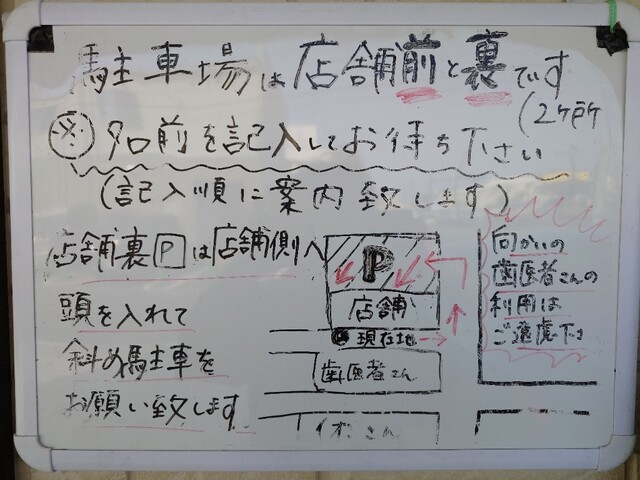 駐車場は店舗前と裏です
(2ヶ所
※ 名前を記入してお待ち下さい
(記入順に案内致します)
店舗裏Pは店舗側へ
頭を入れて
斜め駐車を
お願い致します
P
店舗
現在地
歯医者さん
さん
向かいの
歯医者さんの
利用は
ご遠慮下さ